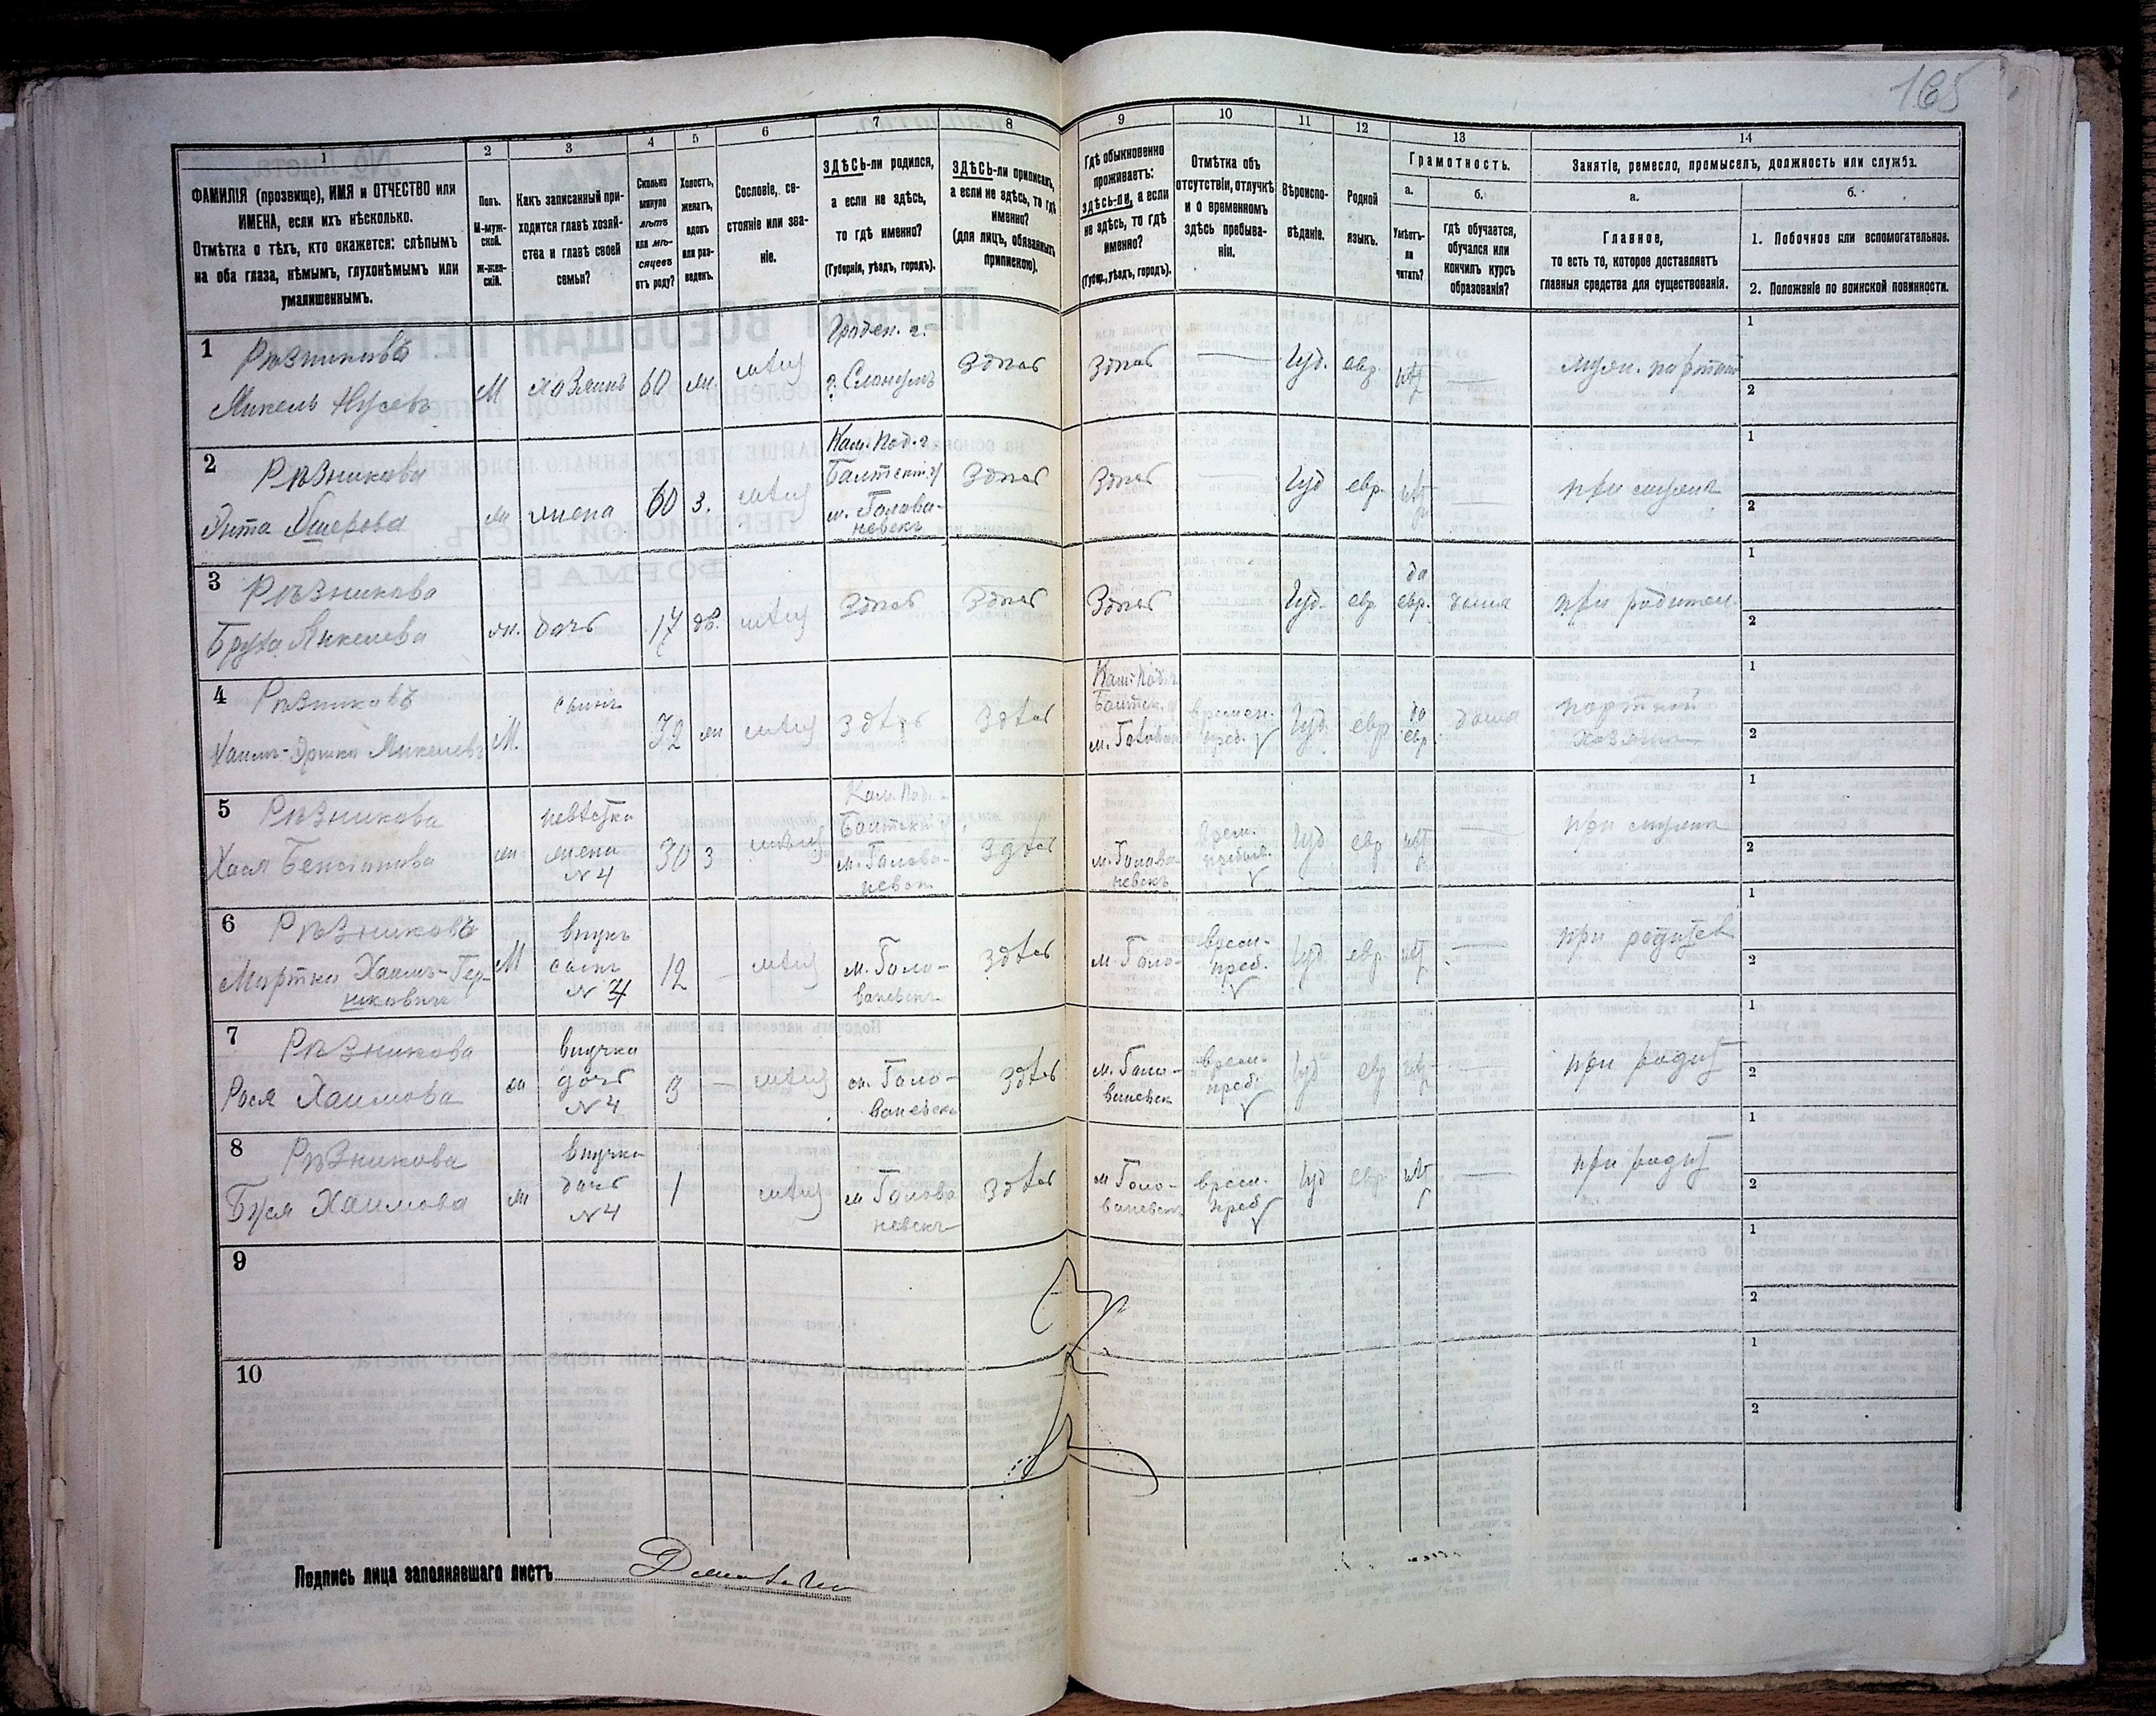 165
1
ФАМИЛІЯ (прозвище), ИМЯ и ОТЧЕСТВО или
ИМЕНА, если ихъ нѣсколько.
Отмѣтка о тѣхъ, кто окажется: слѣпымъ
на оба глаза, нѣмымъ, глухонѣмымъ или
умалишеннымъ.
2
Полъ.
М-муж-
ской.
Ж-жен-
скій.
3
Какъ записанный при-
ходится главѣ хозяй-
ства и главѣ своей
семьи?
4
Сколько
минуло
лѣтъ
или мѣ-
сяцевъ
отъ роду?
5
Холостъ,
женатъ,
вдовъ
или раз-
веденъ.
6
Сословіе, со-
стояніе или зва-
ніе.
7
ЗДѢСЬ-ли родился,
а если не здѣсь,
то гдѣ именно?
(Губернія, уѣздъ, городъ).
8
ЗДѢСЬ-ли приписанъ,
а если не здѣсь, то гдѣ
именно?
(для лицъ, обязанныхъ
припискою).
9
Гдѣ обыкновенно
проживаетъ:
здѣсь-ли, а если
не здѣсь, то гдѣ
именно?
(Губер., уѣздъ, городъ).
10
Отмѣтка объ
отсутствіи, отлучкѣ
и о временномъ
здѣсь пребыва-
ніи.
11
Вѣроиспо-
вѣданіе.
12
Родной
языкъ.
13
Грамотность.
а.
Умѣетъ-
ли
читать?
б.
гдѣ обучается,
обучался или
кончилъ курсъ
образованія?
14
Занятіе, ремесло, промыселъ, должность или служба.
а.
Главное,
то есть то, которое доставляетъ
главныя средства для существованія.
б.
1. Побочное или вспомогательное.
2. Положеніе по воинской повинности.
1
Рѣзниковъ
М хозяинъ 60 жн. мѣщ
Гроден. г.
г. Слонимъ
Здѣсь Здѣсь — Іуд. евр. нѣт —
1
2
2
Рѣзникова
жена 60 з. мѣщ
Кам. Под. г
Балтскій у
м. Голова-
невскъ
Здѣсь Здѣсь — Іуд евр. нѣт — при мужѣ
1
2
3
Рѣзникова
Бруха
дочь 17 дѣ. мѣщ Здѣсь Здѣсь Здѣсь Іуд. евр
да
евр. дома при родител.
1
2
4
Рѣзниковъ
М. сынъ 32 жн мѣщ здѣсь здѣсь
Кам. Под. г
Балтск.
м. Голован
времен.
преб. Іуд евр
да
евр. дома портной
хозяинъ
1
2
5
Рѣзникова
Хася
невѣстка
жена
№ 4
30 з
Кам. Под.
Балтскій
м. Голова-
невск
здѣсь
м. Голова-
невскъ
Врем.
Іуд евр нѣт — при мужѣ
1
2
6
Рѣзниковъ
Мортко Хаимъ-Гер-
шковичъ
М
внукъ
сынъ
№ 4
12 — мѣщ
м. Голо-
ваневскъ
здѣсь
м. Голо-
Врем.
преб.
Іуд евр. нѣт — при
1
2
7
Рѣзникова
Рося Хаимова
внучка
дочь
№ 4
9 — мѣщ
м. Голо-
ваневскъ
здѣсь
м. Голо-
ваневск
Врем.
преб.
Іуд евр нѣт — при родит
1
2
8
Рѣзникова
Буся Хаимова
внучка
дочь
№ 4
1 мѣщ
м Голова
невскъ
здѣсь
м Голо-
ваневскъ
врем.
преб
Іуд евр нѣт — при родит
1
2
9
1
2
10
1
2
Подпись лица заполнявшаго листъ